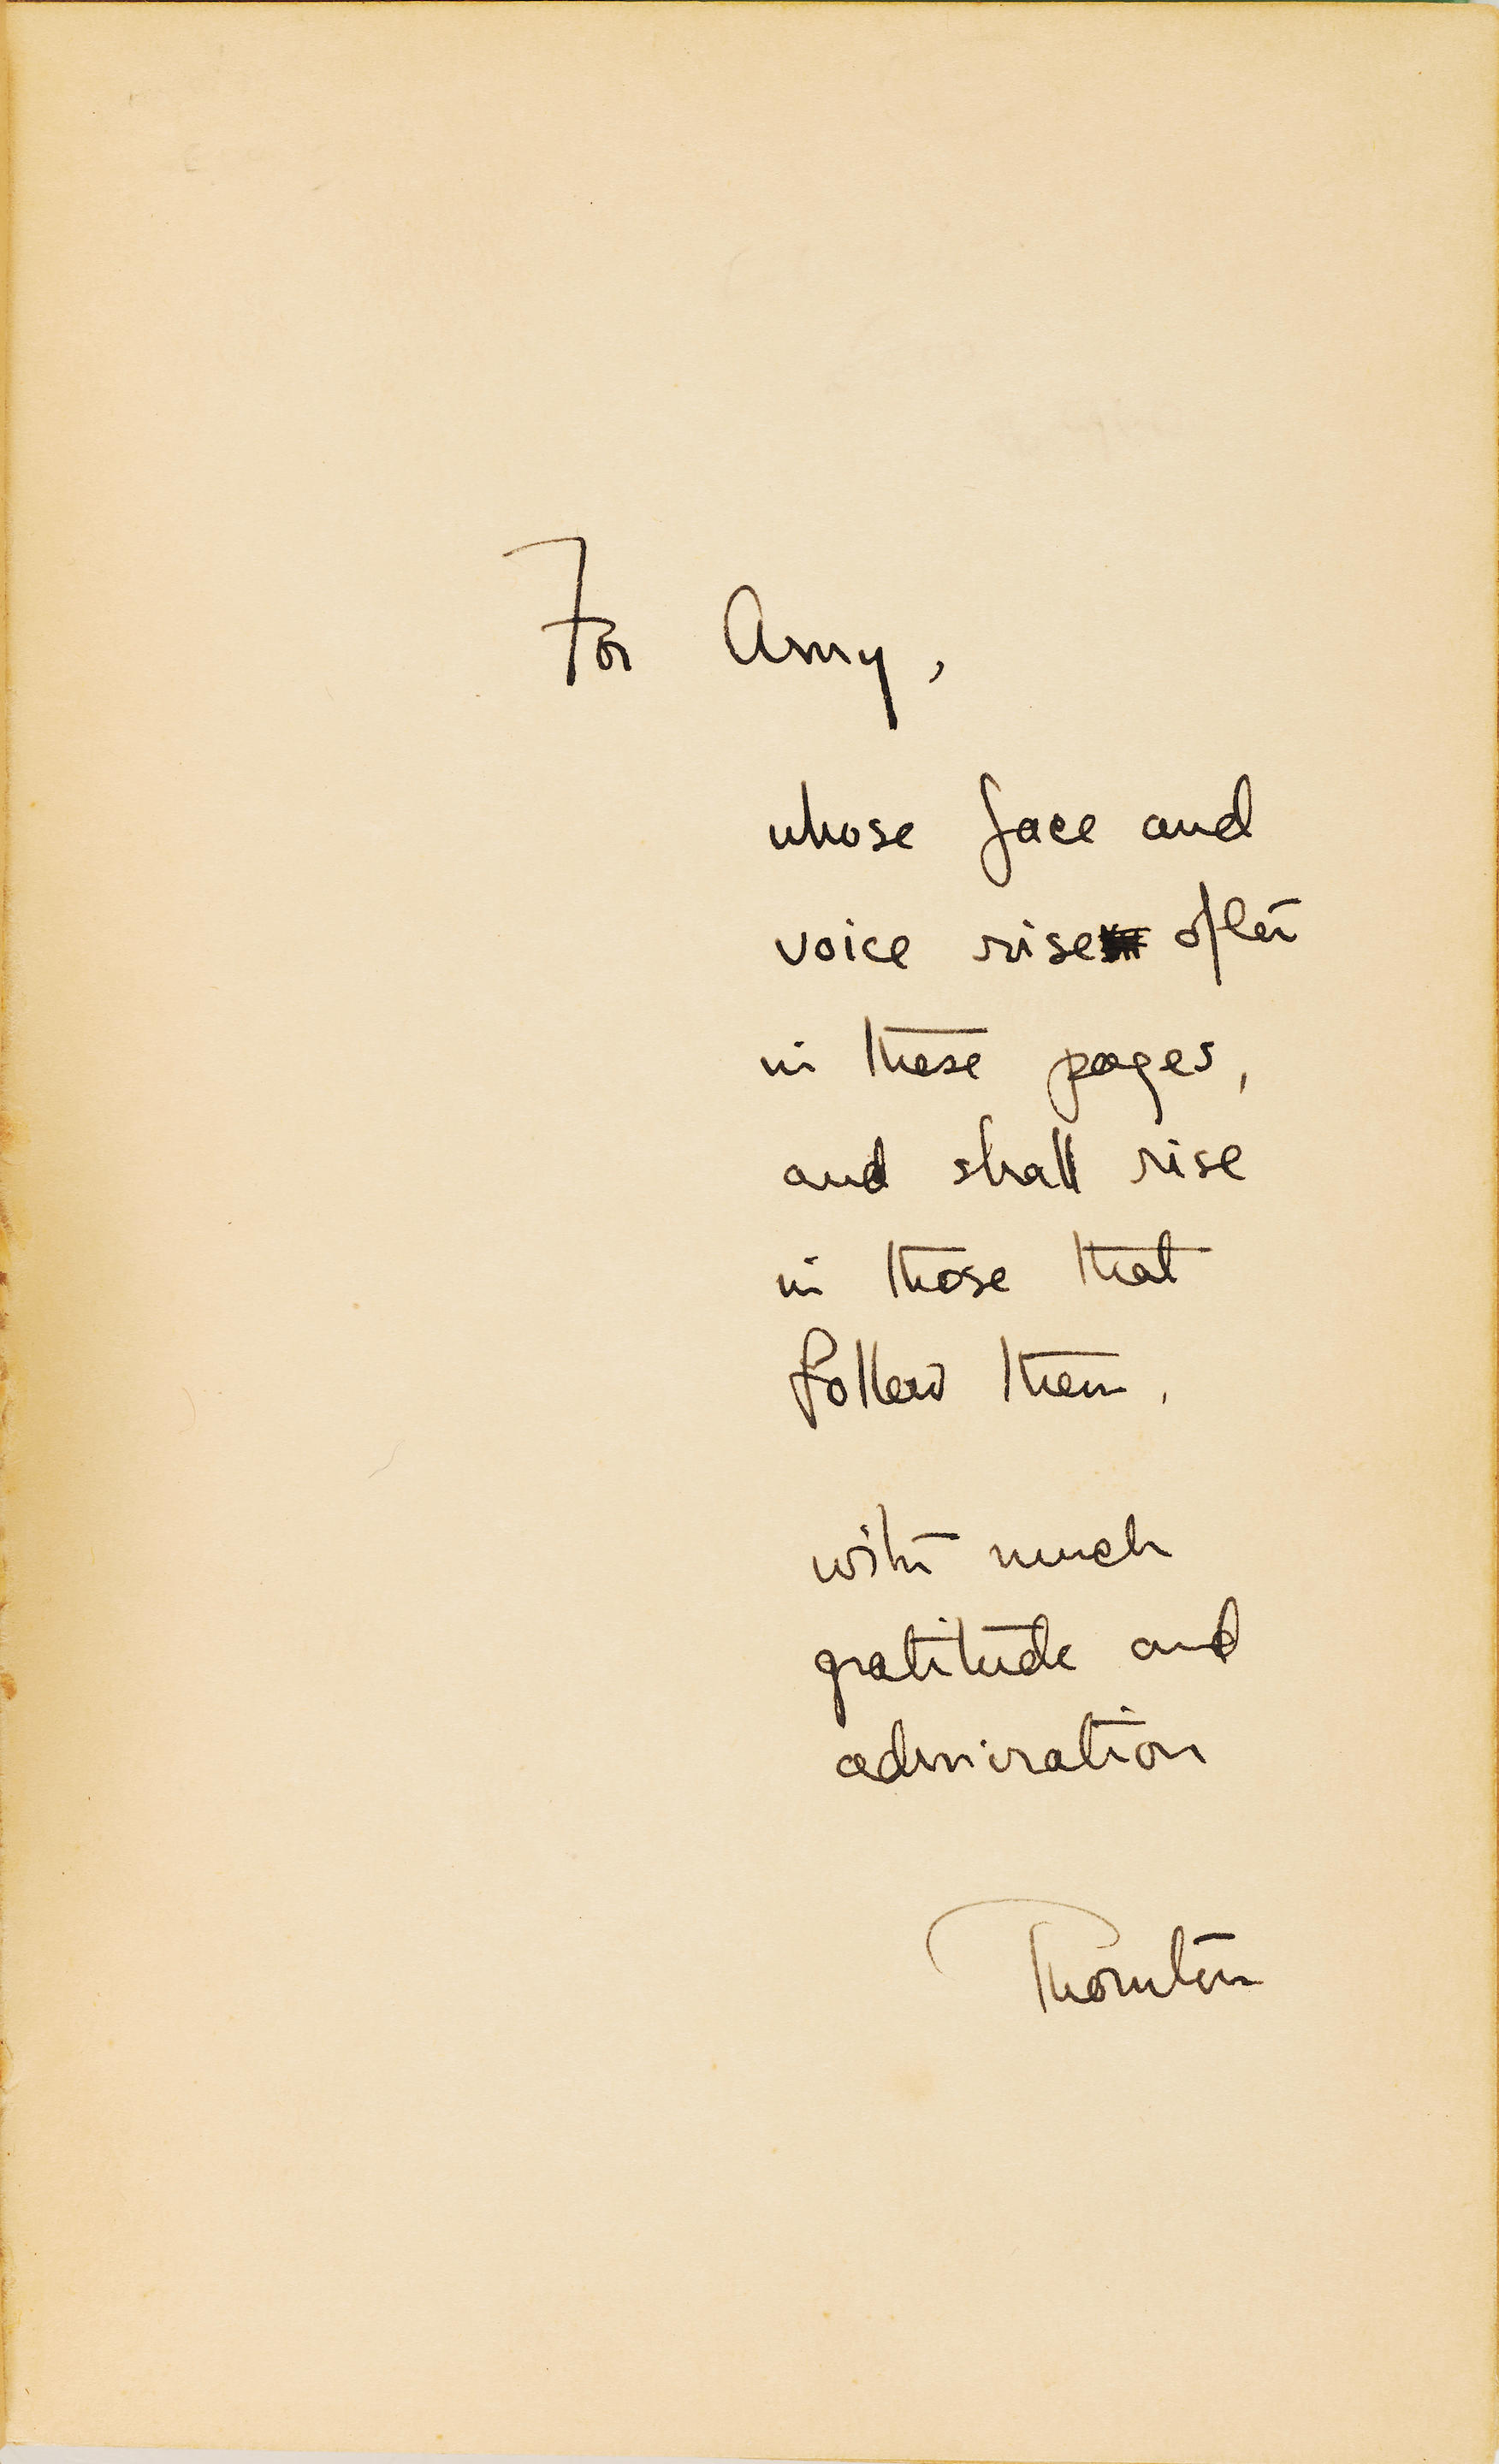 For Amy,
whose face and
voice rise often
in these pages,
and shall rise
in those that
follow them.
with much
gratitude and
admiration
Thornton